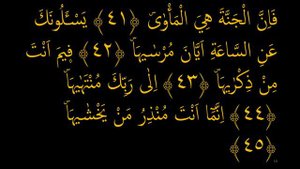 فَاِنَّ الْجَنَّةَ هِيَ الْمَأْوٰىۜ ﴿٤١﴾ يَسْـَٔلُونَكَ
عَنِ السَّاعَةِ اَيَّانَ مُرْسٰيهَاۜ ﴿٤٢﴾ فٖيمَ اَنْتَ
مِنْ ذِكْرٰيهَاۜ ﴿٤٣﴾ اِلٰى رَبِّكَ مُنْتَهٰيهَاۜ
﴿٤٤﴾ اِنَّمَٓا اَنْتَ مُنْذِرُ مَنْ يَخْشٰيهَاۜ
﴿٤٥﴾